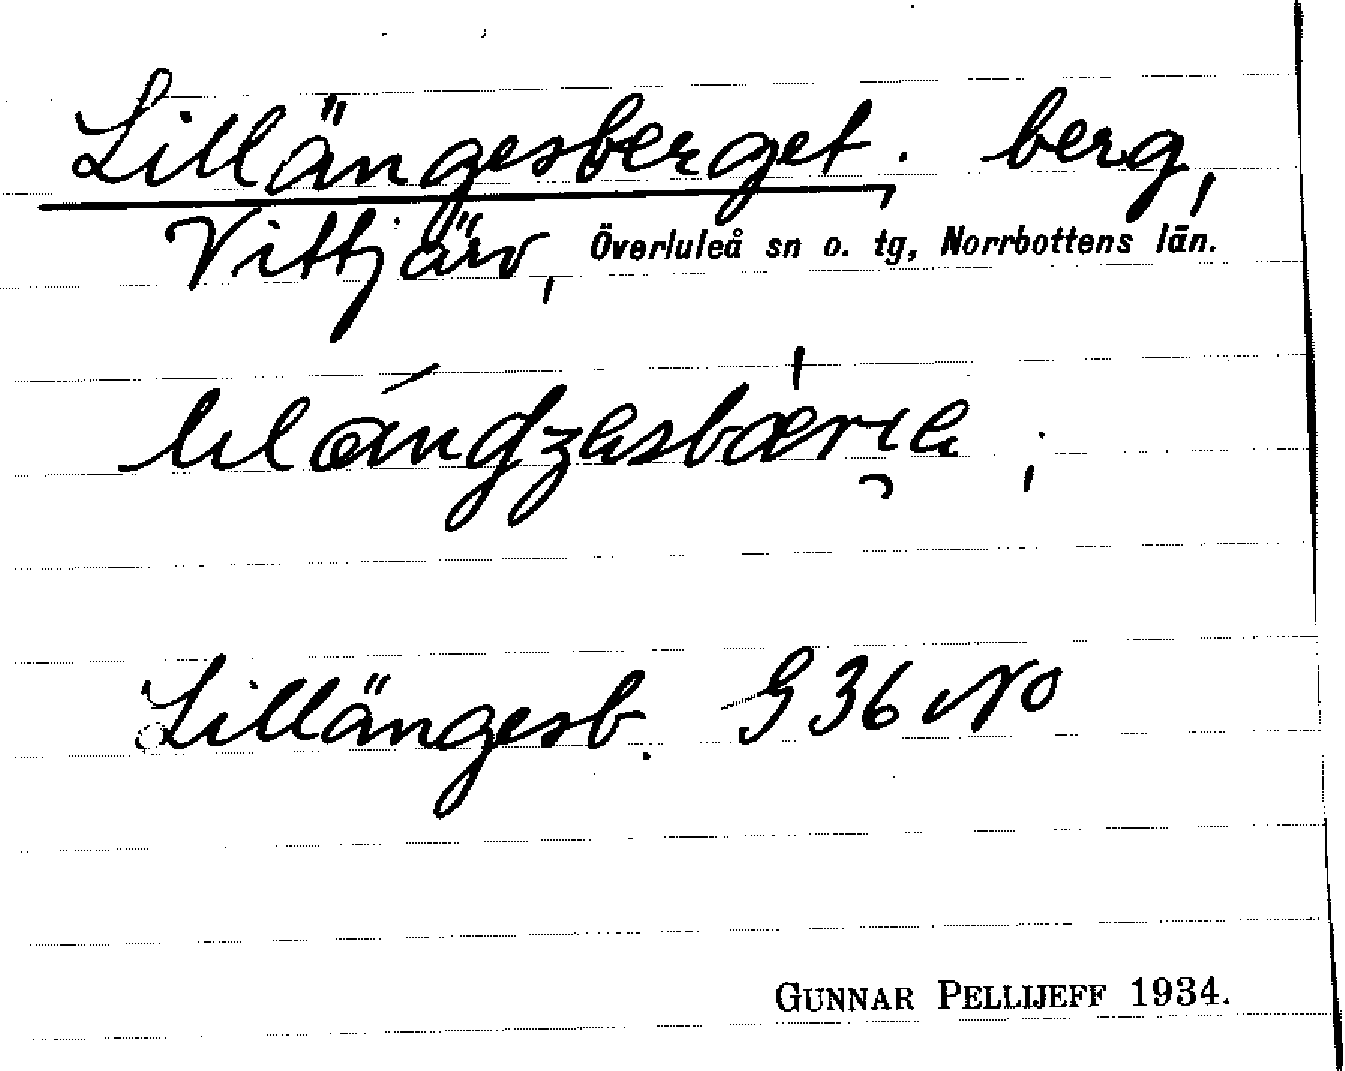 Lillängesberget. berg,
Vittjärv, Överluleå sn o. tg, Norrbottens län.
Lillängesb. G 36 NO
GUNNAR PELLIJEFF 1934.